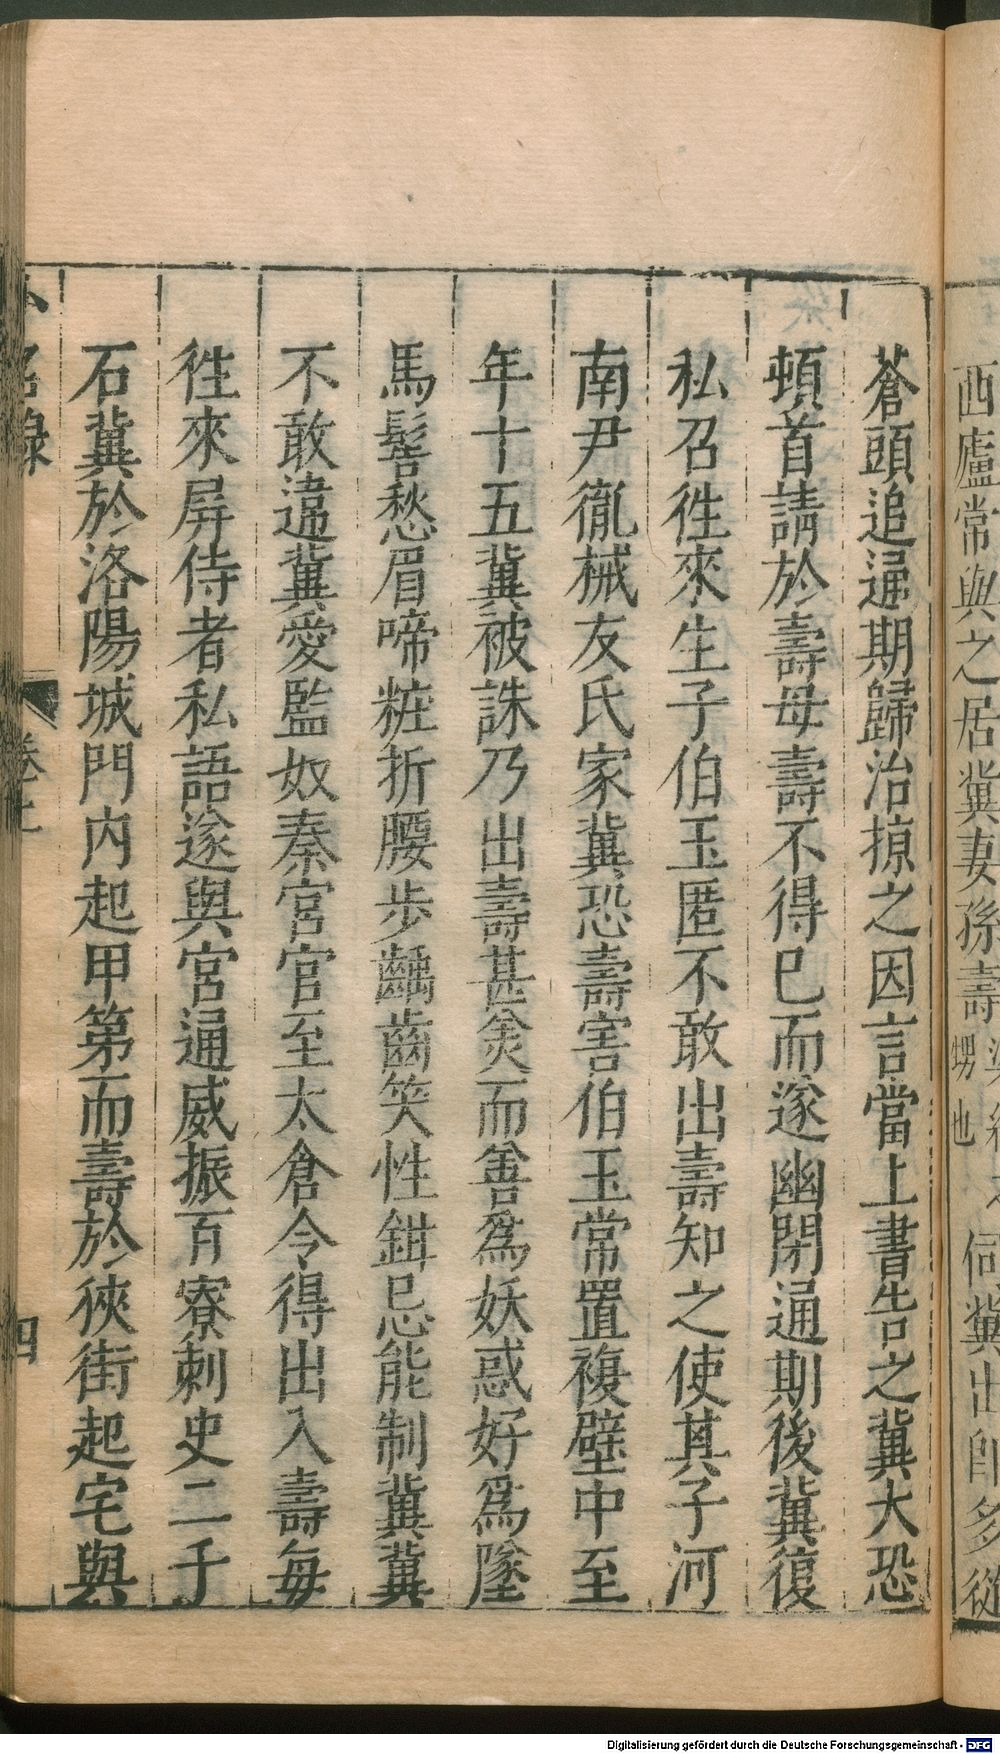 西廬常與之居冀妻孫壽
甥也
伺冀出即多從
蒼頭追通期歸治掠之因言當上書告之冀大恐
頓首請於壽母壽不得已而遂幽閉通期後冀復
私召徃來生子伯玉匿不敢出壽知之使其子河
南尹𧗳械友氏家冀恐壽害伯玉常置複壁中至
年十五冀被誅乃出壽甚美而善為妖惑好為墜
馬髻愁眉啼粧折腰步齲齒笑性鉗忌能制冀冀
不敢違冀愛監奴秦宮官至太倉令得出入壽每
徃來屏侍者私語遂與宮通威振百寮刺史二千
石冀於洛陽城門内起甲第而壽於狹街起宅與
名錄
卷上
四
Digitalisierung gefördert durch die Deutsche Forschungsgemeinschaft - DFG